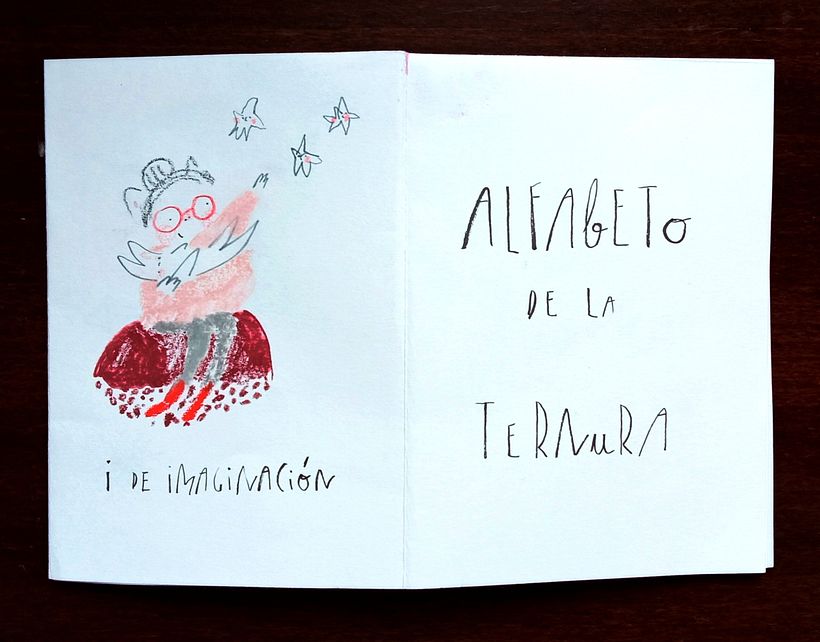 i DE iMAGiNACióN
ALFAbETo
DE LA
TERNuRA